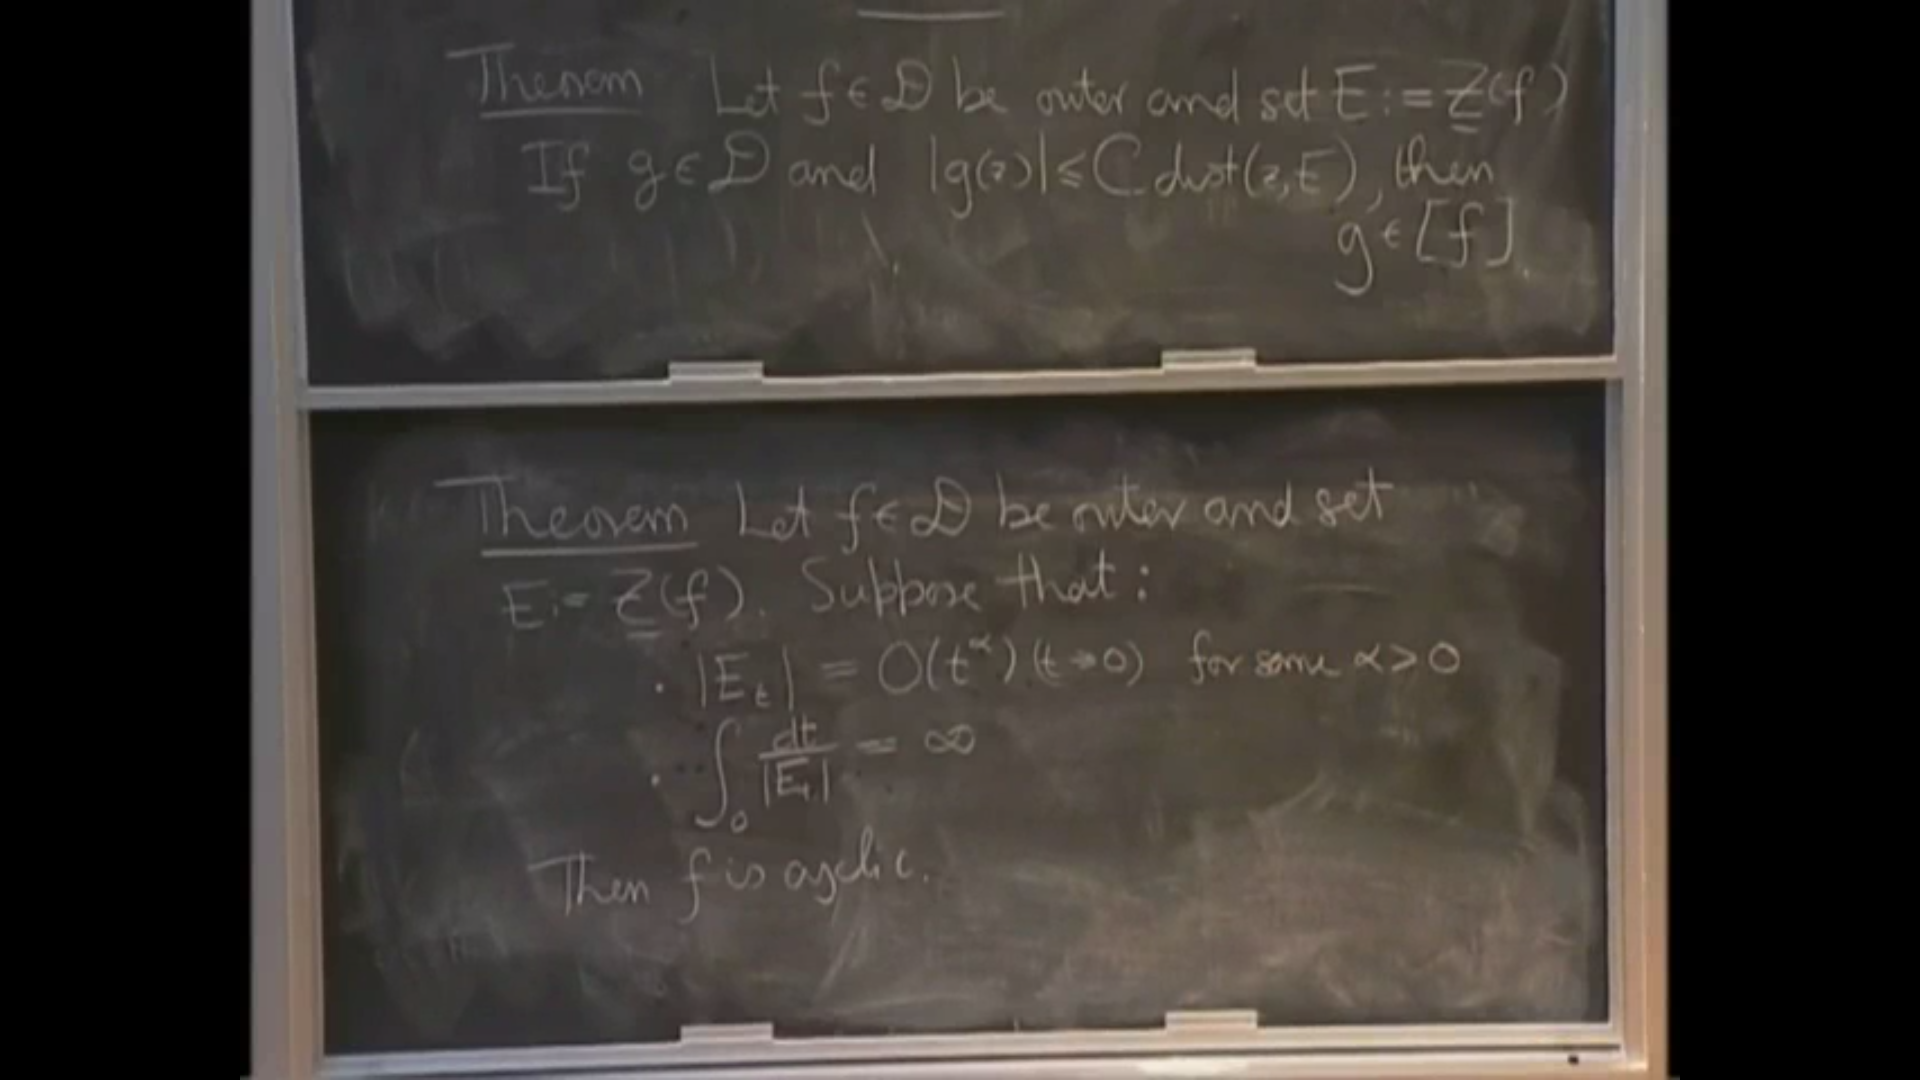 Theorem Let f ∈ 𝒟 be outer and set E := Z(f)
If g ∈ 𝒟 and |g(z)| ≤ C dist(z,E), then
g ∈ [f].
Theorem Let f ∈ 𝒟 be outer and set
E := Z(f). Suppose that:
· |E_t| = O(t^α) (t→0) for some α > 0
· ∫_0 dt/|E_t| = ∞
Then f is cyclic.